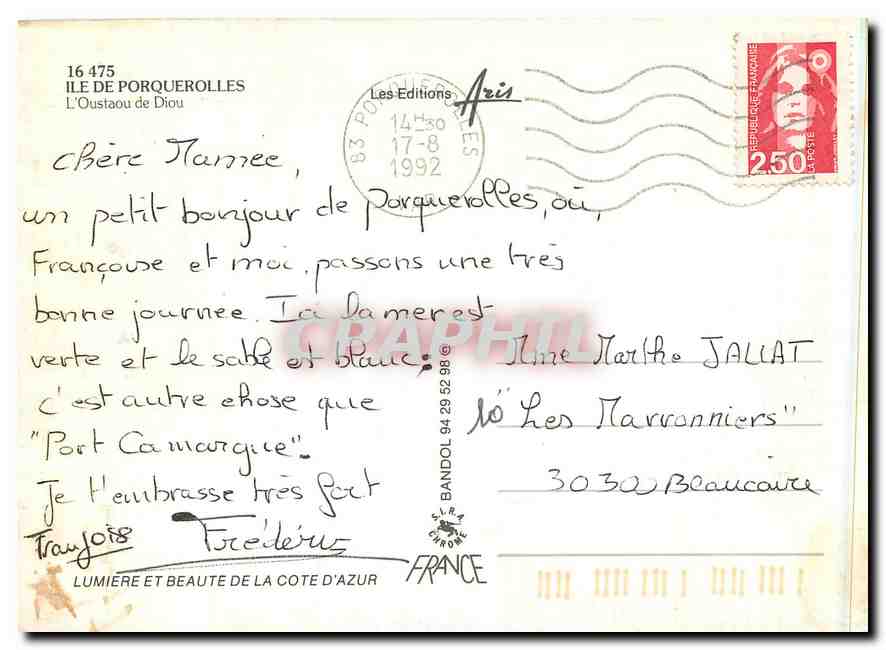 16 475
ILE DE PORQUEROLLES
L'Oustaou de Diou
Les Editions Aris
83 PORQUEROLLES
14H30
17-8
1992
REPUBLIQUE FRANÇAISE
LA POSTE
2,50
chère Mamée,
un petit bonjour de Porquerolles, où,
Françoise et moi, passons une très
bonne journée. Ici la mer est
verte et le sable est blanc:
c'est autre chose que
"Port Camargue".
Je t'embrasse très fort
Frédéric
Françoise
LUMIERE ET BEAUTE DE LA COTE D'AZUR
BANDOL 94 29 52 98 ©
S.I.R.A. CHROME
FRANCE
Mme Marthe JALLAT
10 "Les Marronniers"
30300 Beaucaire
CRAPHIL